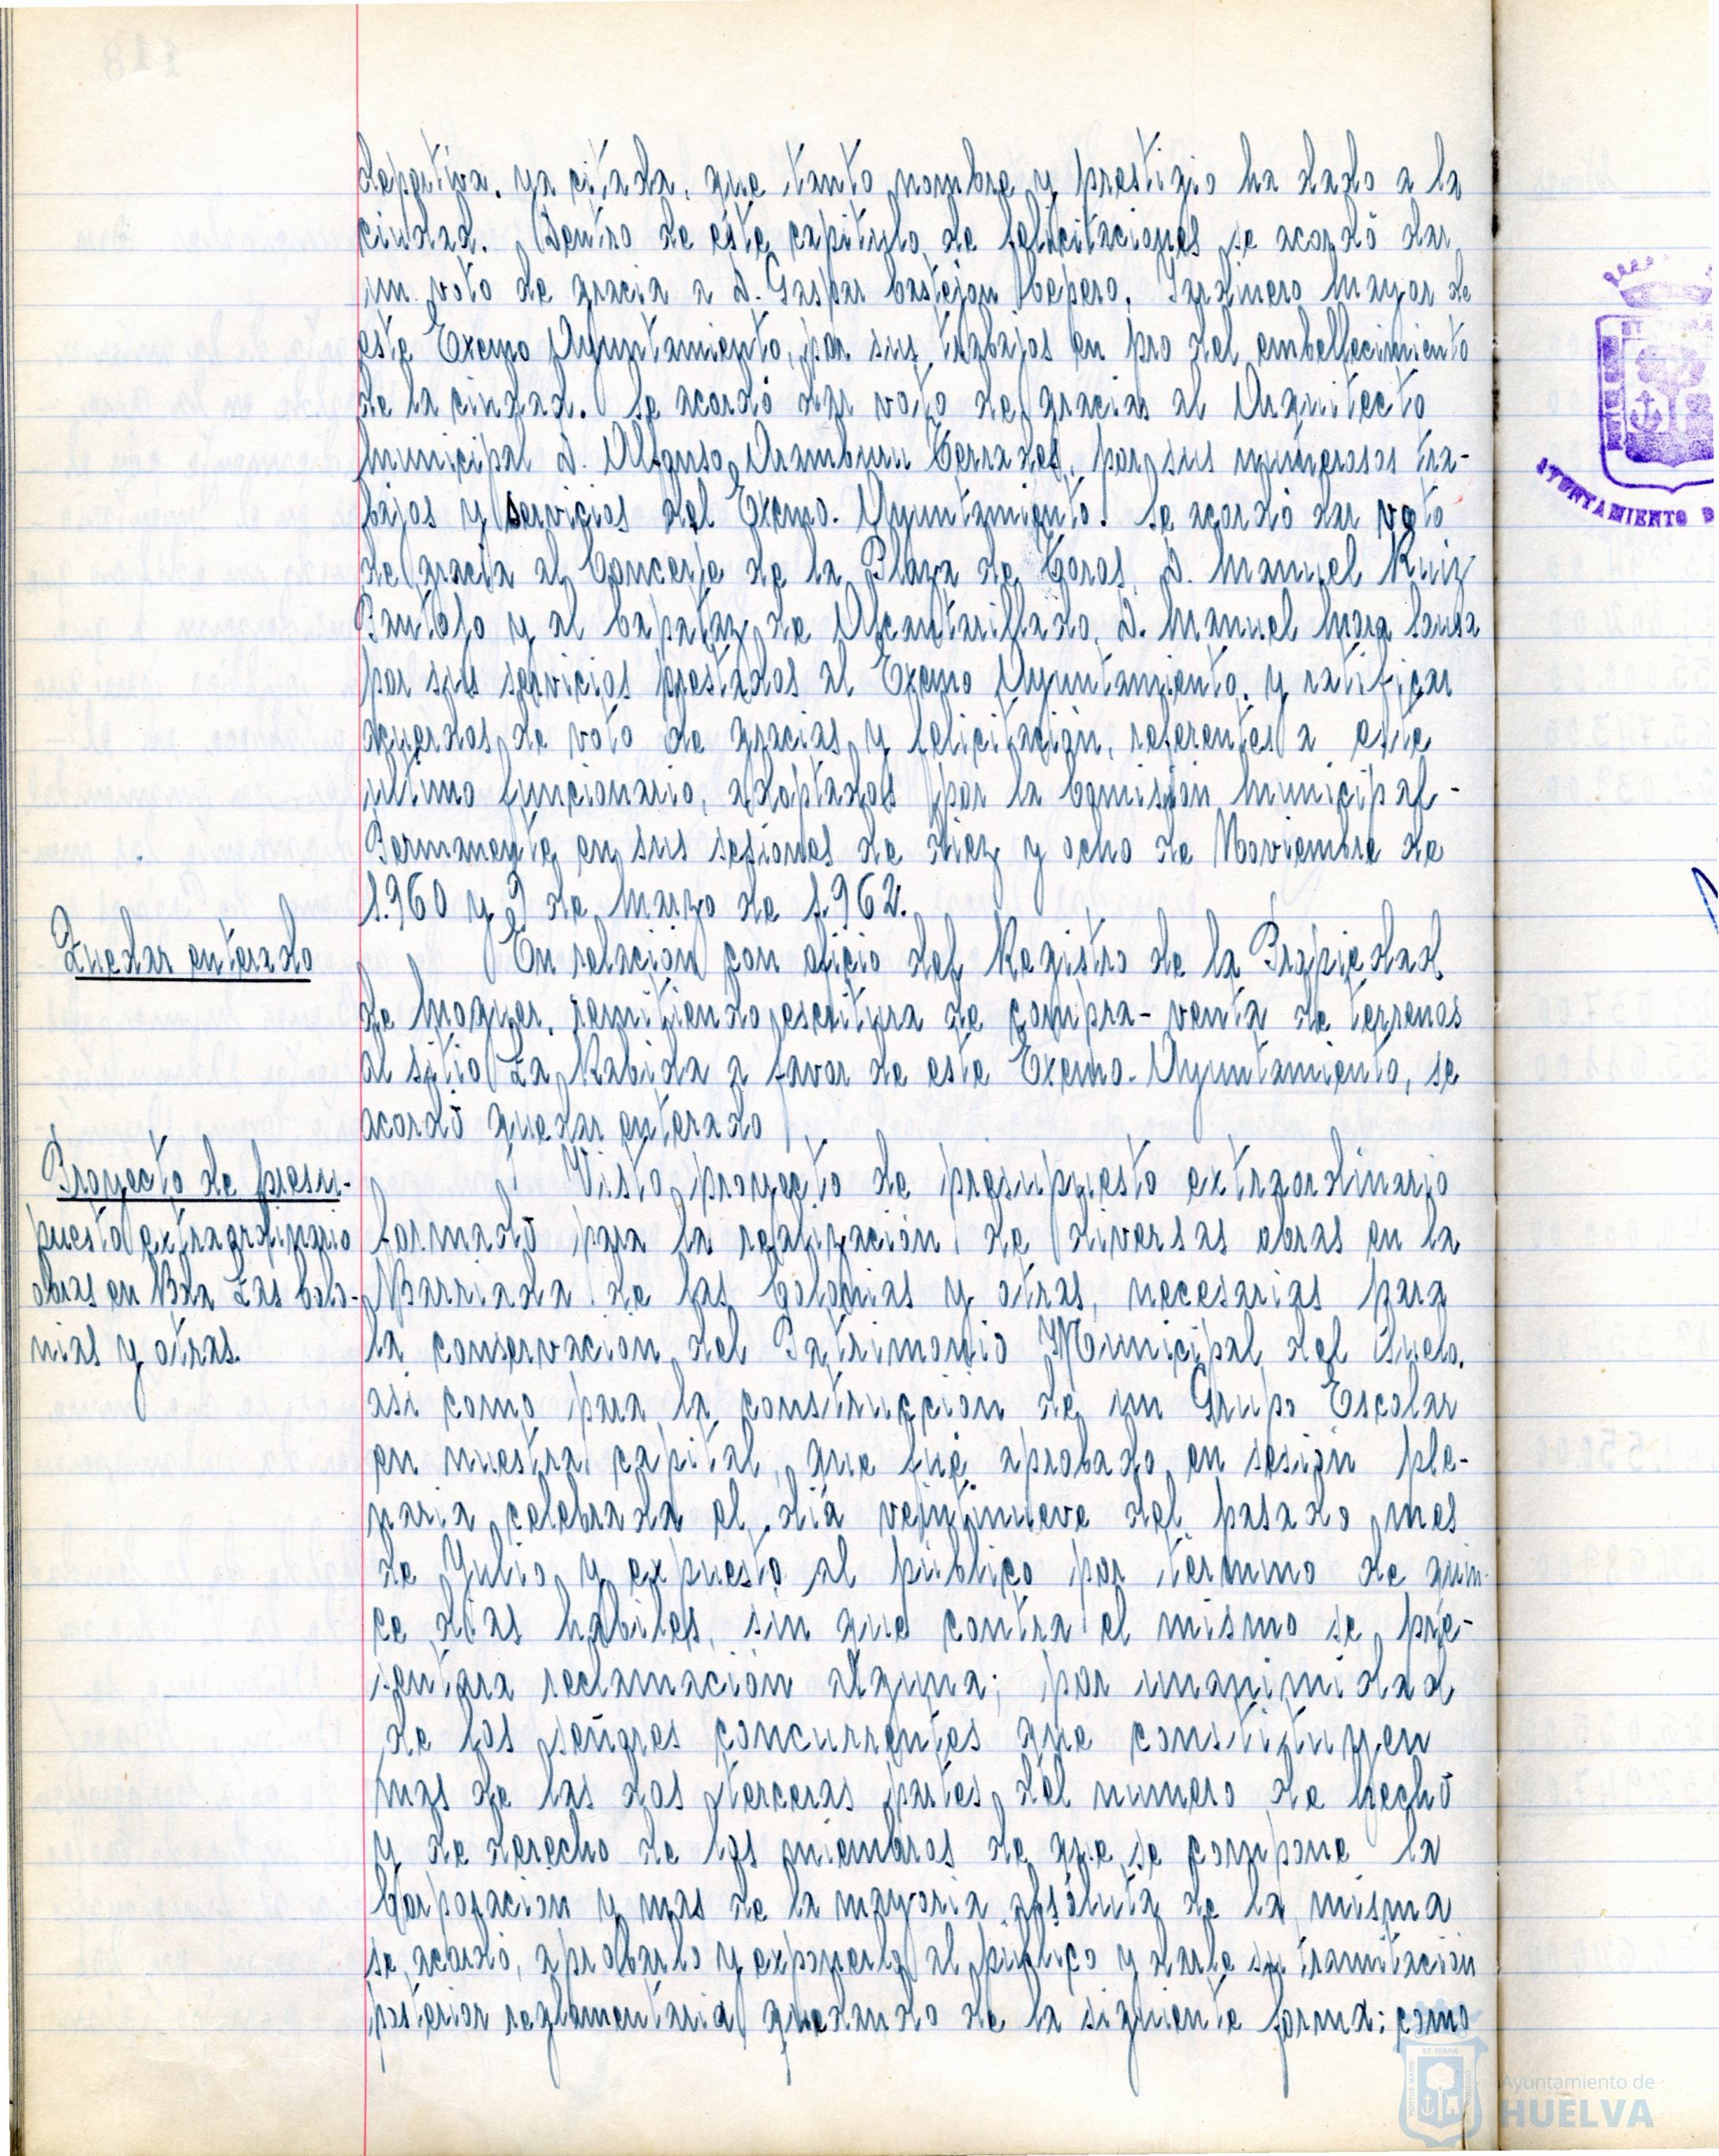 deportiva, ya citada, que tanto nombre y prestigio ha dado a la
ciudad. Dentro de este capitulo de felicitaciones se acordó dar
un voto de gracia a D. Gaspar Castejon Cepero, Jardinero Mayor de
este Excmo Ayuntamiento, por sus trabajos en pro del embellecimiento
de la ciudad. Se acordó dar voto de gracias al Arquitecto
Municipal D. Alfonso Aramburu Terrades, por sus numerosos tra-
bajos y servicios del Excmo. Ayuntamiento. Se acordó dar voto
de gracia al Concerje de la Plaza de Toros, D. Manuel Ruiz
y al Capataz de Alcantarillado, D. Manuel Mora Sousa
por sus servicios prestados al Excmo Ayuntamiento, y ratificar
acuerdos de voto de gracias y felicitación, referentes a este
ultimo funcionario, adoptados por la Comisión Municipal-
Permanente en sus sesiones de diez y ocho de Noviembre de
1.960 y 9 de Marzo de 1.962.
Quedar enterado
En relación con oficio del Registro de la Propiedad
de Moguer, remitiendo escritura de compra-venta de terrenos
al sitio La Rabida a favor de este Excmo. Ayuntamiento, se
acordó quedar enterado
Proyecto de presu-
puesto extraordinario
obras en Bda Las Colo-
nias y otras.
Visto proyecto de presupuesto extraordinario
formado para la realización de diversas obras en la
Barriada de las Colonias y otras, necesarias para
la conservación del Patrimonio Municipal del Suelo,
asi como para la construcción de un Grupo Escolar
en nuestra capital, que fué aprobado en sesión ple-
naria celebrada el día veintinueve del pasado mes
de Julio y expuesto al público por término de quin-
ce dias habiles, sin que contra el mismo se pre-
sentara reclamación alguna; por unanimidad
de los señores concurrentes que constituyen
mas de las dos terceras partes del numero de hecho
y de derecho de los miembros de que se compone la
Corporacion y mas de la mayoria absoluta de la misma
se acordó, aprobarlo y exponerlo al público y darle su tramitación
posterior reglamentaria quedando de la siguiente forma: como
AYUNTAMIENTO D
Ayuntamiento de
HUELVA